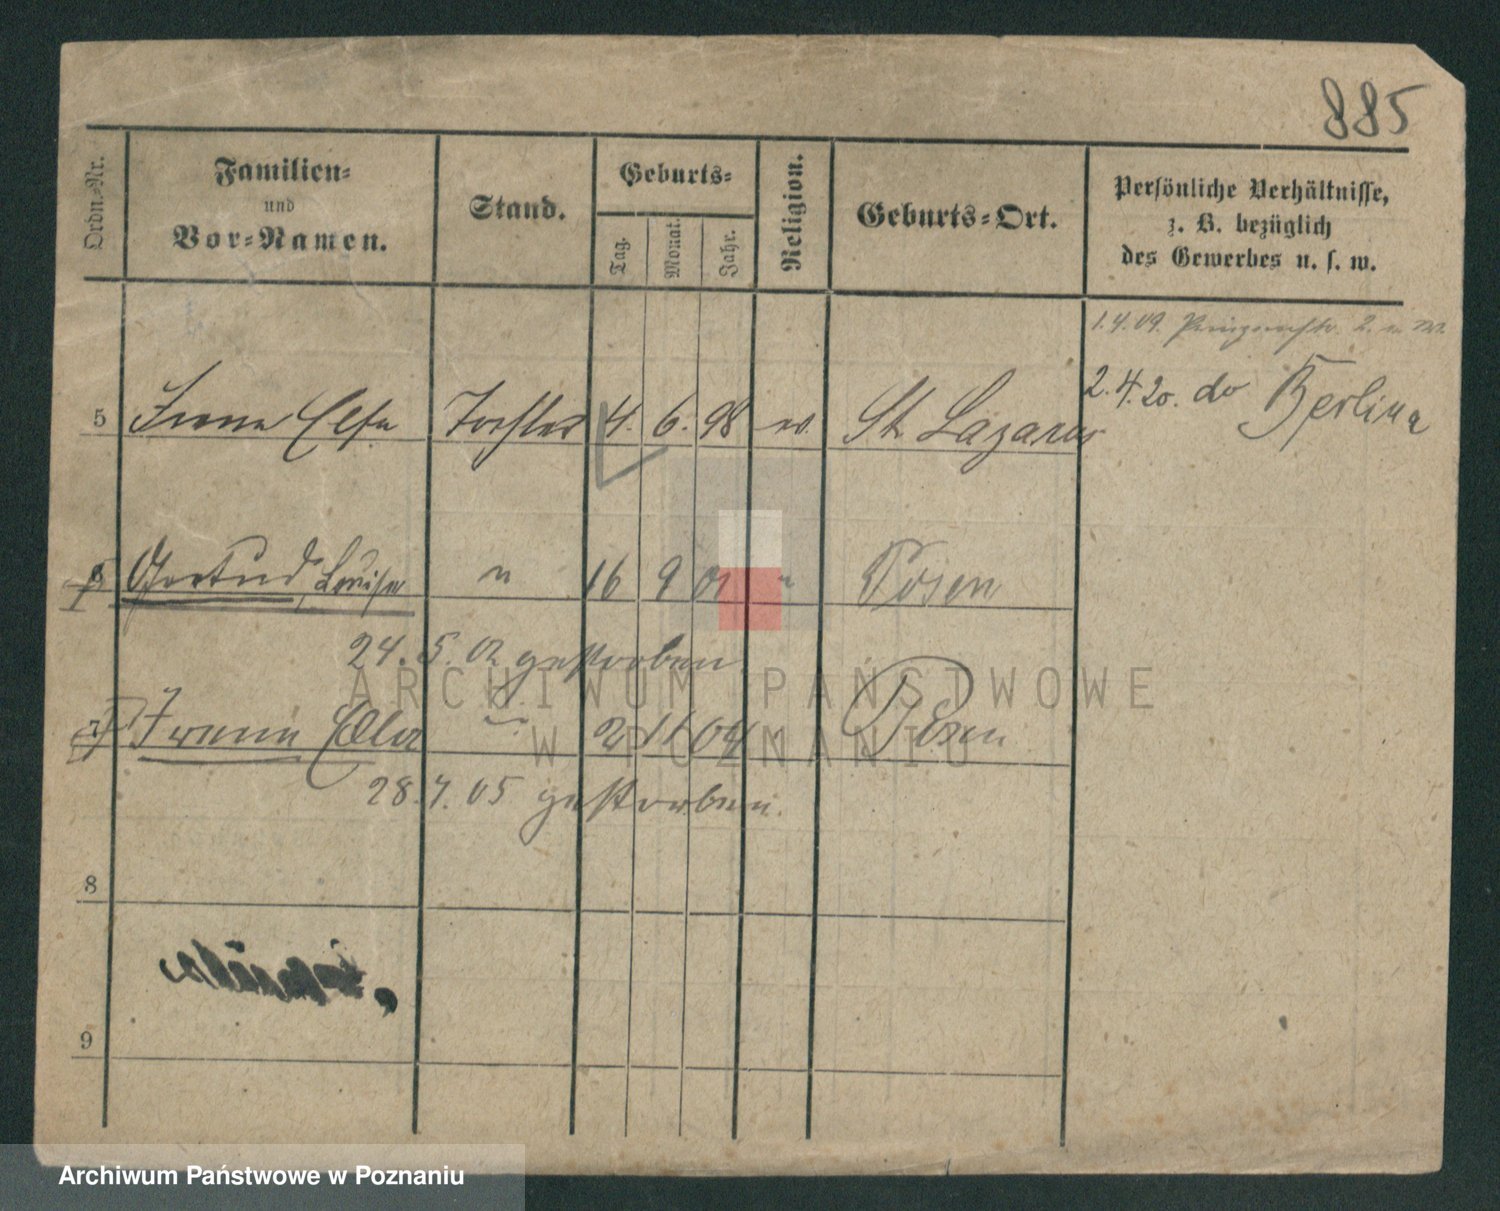 885
Ordn.-Nr.
Familien-
und
Vor-Namen.
Stand.
Geburts-
Tag.
Monat.
Jahr.
Religion.
Geburts-Ort.
Persönliche Verhältnisse,
z. B. bezüglich
des Gewerbes u. s. w.
1.4.09. 2.
2.4.20. do Berlina
5 Irene Else Tochter 4. 6. 98 St. Lazarus
6 Gertrud Louise " 16 9 01 " Posen
24. 5. 02 gestorben
7 2 11 04 " Posen
28.4.05 gestorben.
8
9
ARCHIWUM PAŃSTWOWE
W POZNANIU
Archiwum Państwowe w Poznaniu